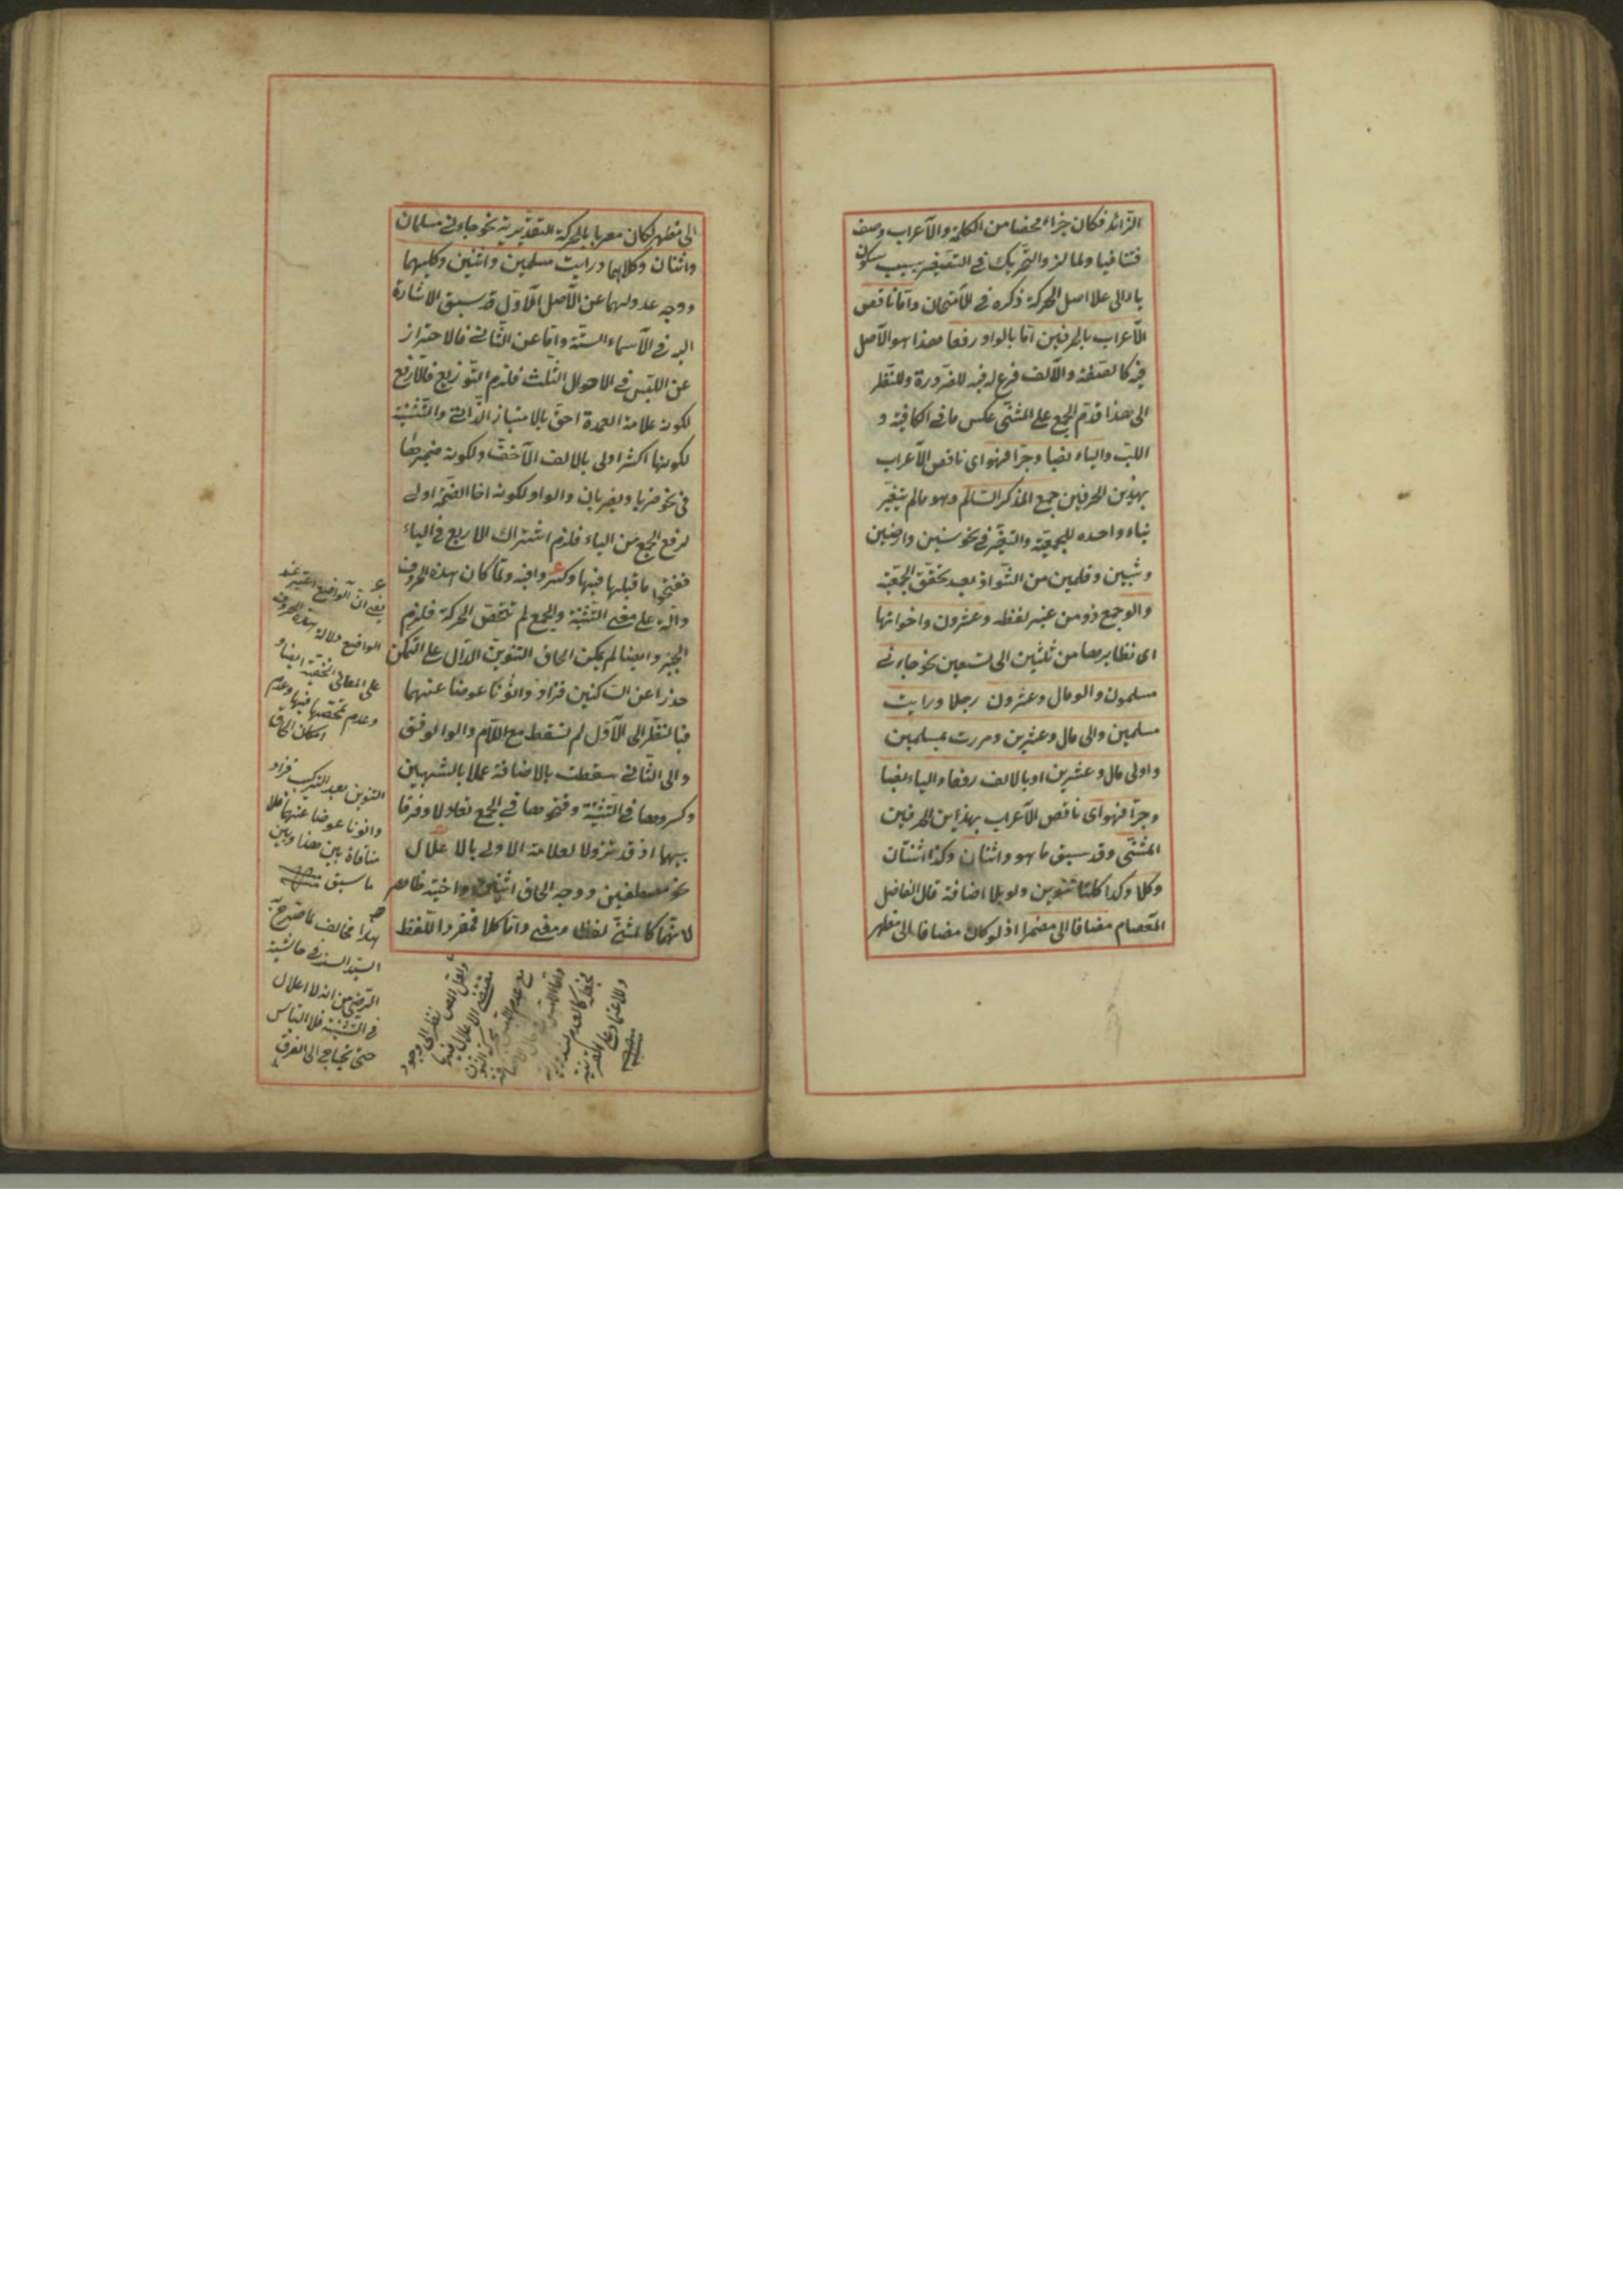 الزائد فكان جزاء محضا من الكلمة والاعراب وصف
فتنافيا ولما لزم التحريك في التصغير بسبب سكون
ياء الى علا اصل الحركة ذكره في الامتحان واما ناقص
الاعراب بالحرفين اما بالواو رفعا هذا هو الاصل
فيه كالضمة والالف فرع له فيه للضرورة وللنظر
الى هذا قدم الجمع على المثنى عكس ما في الكافية و
اللب والياء نصبا وجرا فهو اى ناقص الاعراب
بهذين الحرفين جمع المذكر السالم وهو ما لم يتغير
بناء واحده للجمعية والتغير في نحو سنين وارضين
وثبين وقلين من الشواذ بعد تحقق الجمعية
والو جمع ذو من غير لفظه وعشرون واخواتها
اى نظايرها من ثلثين الى تسعين نحو جاءنى
مسلمون والو مال وعشرون رجلا ورايت
مسلمين والى مال وعشرين ومررت بمسلمين
واولى مال وعشرين او بالالف رفعا والياء نصبا
وجرا فهو اى ناقص الاعراب بهذين الحرفين
المثنى وقد سبق ما هو واثنان وكذا اثنتان
وكلا وكذا كلتا تنوين ولو بلا اضافة قال الفاضل
العصام مضافا الى مضمر اذ لو كان مضافا الى مظهر
الى مظهر لكان معربا بالحركة التقديرية نحو جاءنى مسلمان
واثنان وكلاهما ورايت مسلمين واثنين وكليهما
ووجه عدولهما عن الاصل الاول قد سبق الاشارة
اليه في الاسماء الستة واما عن الثانى فالاحتراز
عن اللبس في الاحوال الثلث فلزم التوزيع فالرفع
لكونه علامة العمدة احق بالامتياز الذاتى والتثنية
لكونها اكثر اولى بالالف الاخف ولكونه ضميرها
في نحو ضربا ويضربان والواو لكونه اخا الضمة اولى
لرفع الجمع من الياء فلزم اشتراك الاربع في الياء
ففتحوا ما قبلها فيها وكسروا فيه ولما كان هذه الحروف
دالة على معنى التثنية والجمع لم تتحقق الحركة فلزم
الجبر وايضا لم يمكن الحاق التنوين الدال على التمكن
حذرا عن الساكنين فزادوا نونا عوضا عنهما
فبالنظر الى الاول لم تسقط مع اللام والوا لوفق
والى الثانى سقطت بالاضافة عملا بالشبهين
وكسروها في التثنية وفتحوها في الجمع تعادلا وفرقا
بينهما اذ قد تزول العلامة الاولى بالاعلال
نحو مصطفين ووجه الحاق اثنين واختيه ظاهر
لانهما كالمثنى لفظا ومعنى واما كلا فمفرد اللفظ
يعنى ان الواضع اعتبر عند
الواضع دلالة هذه الحروف
على المعانى الخفية ايضا و
وعدم تحققها فيها وعدم
امكان الحاق
التنوين بعد التركيب فزاد
وا نونا عوضا عنهما فلا
منافاة بين هذا وبين
ما سبق منه
هذا مخالف لما صرح به
السيد السند في حاشية
الرضى من انه لا اعلال
في التثنية فلا التباس
حتى يحتاج الى الفرق
ولعل المص نظر الى وجود
مقتضى الاعلال فيها